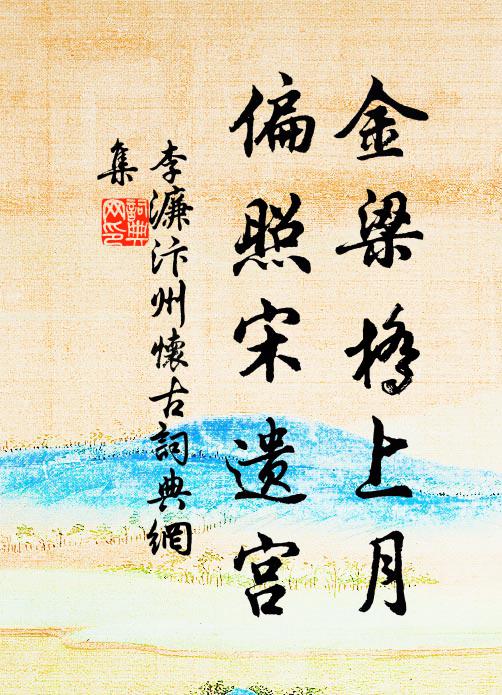 金梁橋上月
偏照宋遗宫
李濂汴州懷古詞典網
集
詞典
网印